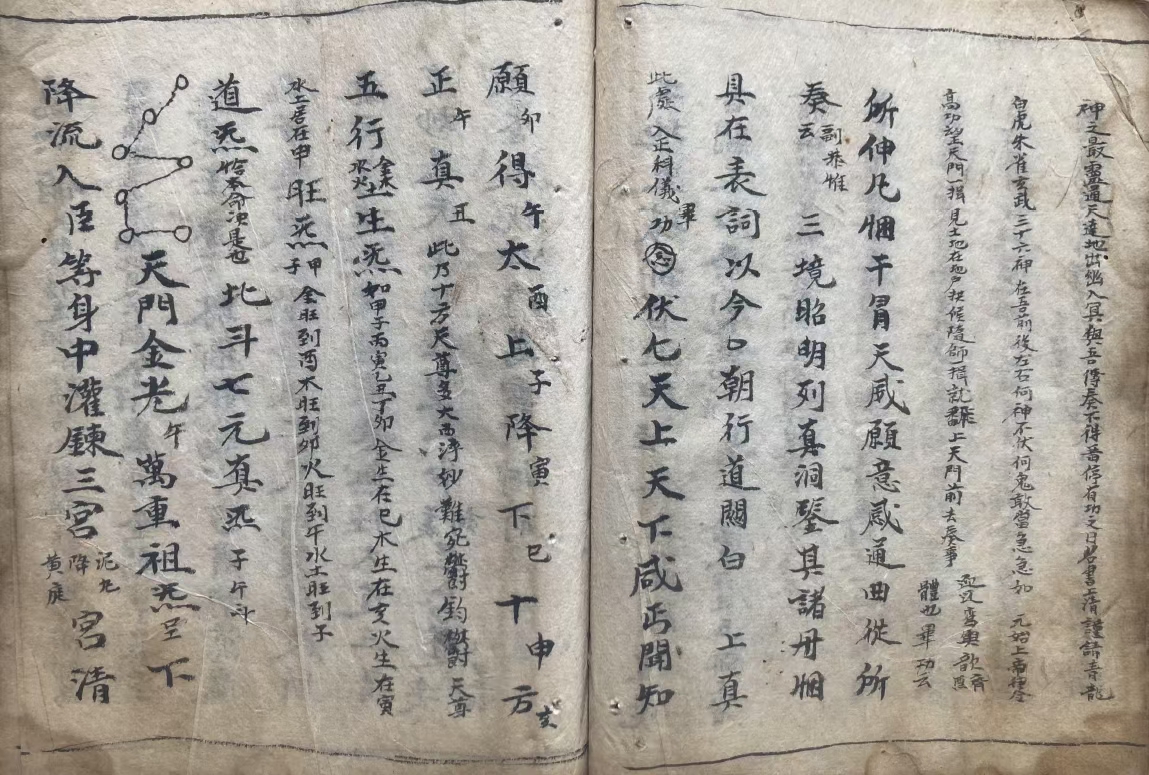 神之最靈通天達地出幽入冥與吾傳奏不得昏停有功之日名書上清謹請青龍
白虎朱雀玄武三十六神在吾前後左右何神不伏何鬼敢當急急如 元始上帝律令
高功望天門一揖見土地在地戶拱候隨師一揖就 上天門前去奏事
體也畢功云
所伸凡悃干冒天威願意感通曲從所
奏云 副恭惟 三境昭明列真洞鑒其諸丹悃
具在表詞以今口朝行道關白 上真
此處入正科儀畢 功念 伏乞天上天下咸丐聞知
願卯得午太酉上子降寅下巳十申方亥
正午真丑 此乃十方天尊 天尊
五行金木水火土生炁如甲子丙寅乙丑丁卯金生在巳木生在亥火生在寅
水土居在申 旺炁甲子 金旺到酉木旺到卯火旺到午水土旺到子
道炁恰本命須是也 北斗七元真炁子午斗
天門金老午萬重祖炁罡下
降流入臣等身中灌鍊三宮 泥丸 降 黃庭 宮清